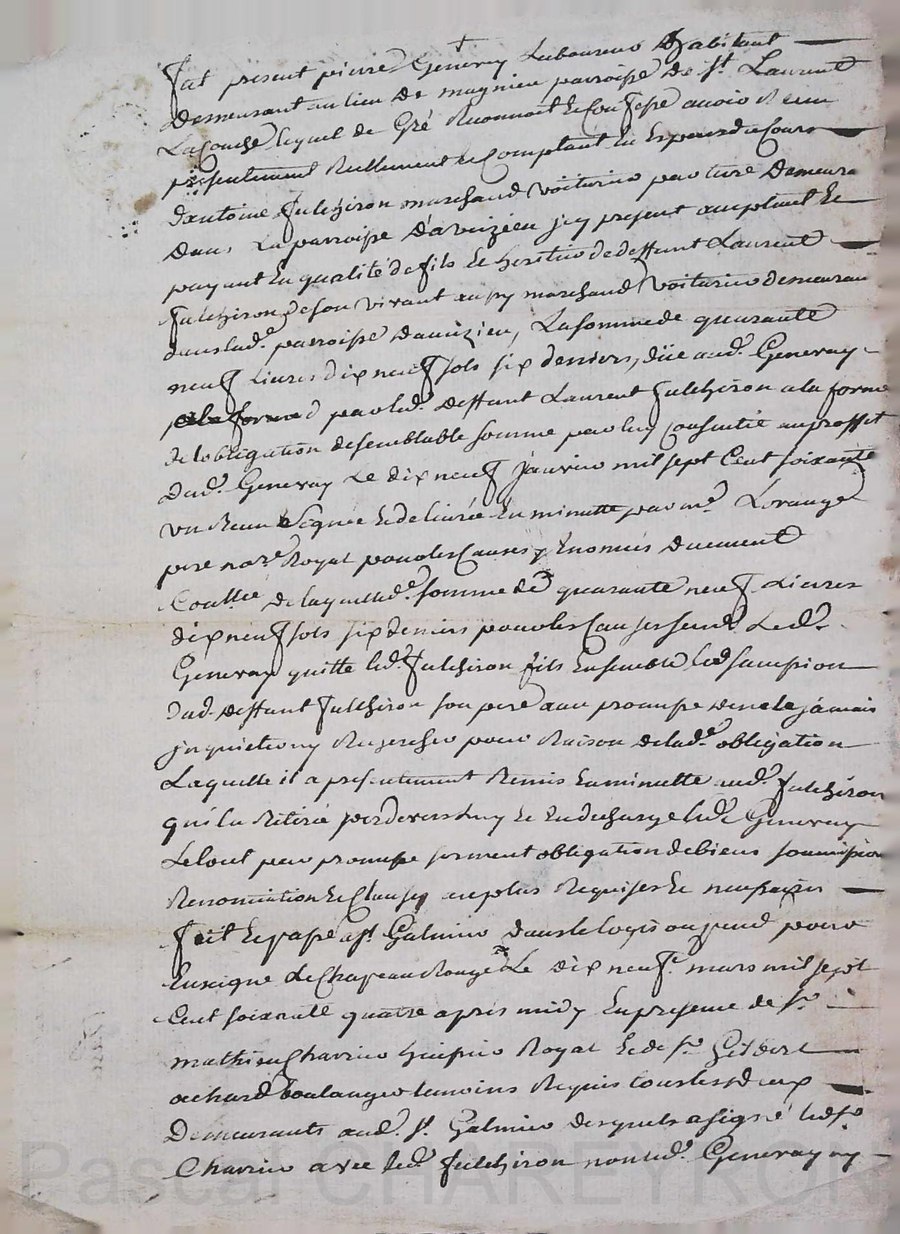 fut present pierre Genevay Laboureur Habitant
Demeurant au lieu De magnieu parroisse De St. Laurent
La Conche lequel de Gré Reconnoit Et Confesse avoir Receu
presentement Reellement et Comptant En Espece de Cours
d'antoine fulchiron marchand voiturier par terre Demeurant
Dans La parroisse D'aveizieu jcy present acceptant Et
payant En qualité de fils Et heritier de deffunt Laurent
fulchiron de son vivant aussy marchand voiturier demeurant
dans lad.e parroisse Daveizieu, La somme de quarante
neuf Livres dix neuf sols six deniers, düe aud. Genevay
par led. deffunt Laurent fulchiron a la forme
de lobligation de semblable somme par luy Consentie au proffit
dud. Genevay Le dix neuf janvier mil sept Cent soixante
un Receu Signée Et delivrée En minutte par me. Lorange
pere no.re Royal pour les Causes y Enoncés Duement
Conllée de laquelle d.e somme de quarante neuf Livres
dix neuf sols six deniers pour les Causes Led.
Genevay quitte led. fulchiron fils Ensemble
dud. deffunt fulchiron son pere avec promesse de ne le jamais
jnquietter ny Rechercher pour Raison de lad.e obligation
Laquelle il a presentement Remis En minutte aud. fulchiron
qui la Retirée par devers luy Et En decharge led. Genevay
Le tout par promesse serment obligation de biens soumission
Renonciation Et Clauses au plus Requises Et necessaires
fait Et passé a St. Galmier dans le logis ou pend pour
Enseigne Le Chapeau Rouge Le dix neuf mars mil sept
Cent soixante quatre apres midy En presence de Sr.
mathieu Charrier huissier Royal Et de Sr. Gilbert
achard boulanger temoins Requis tous les deux
Demeurants aud. St. Galmier desquels a signé led. Sr.
Charrier avec led. fulchiron non led. Genevay ny
Pascal CHAREYRON